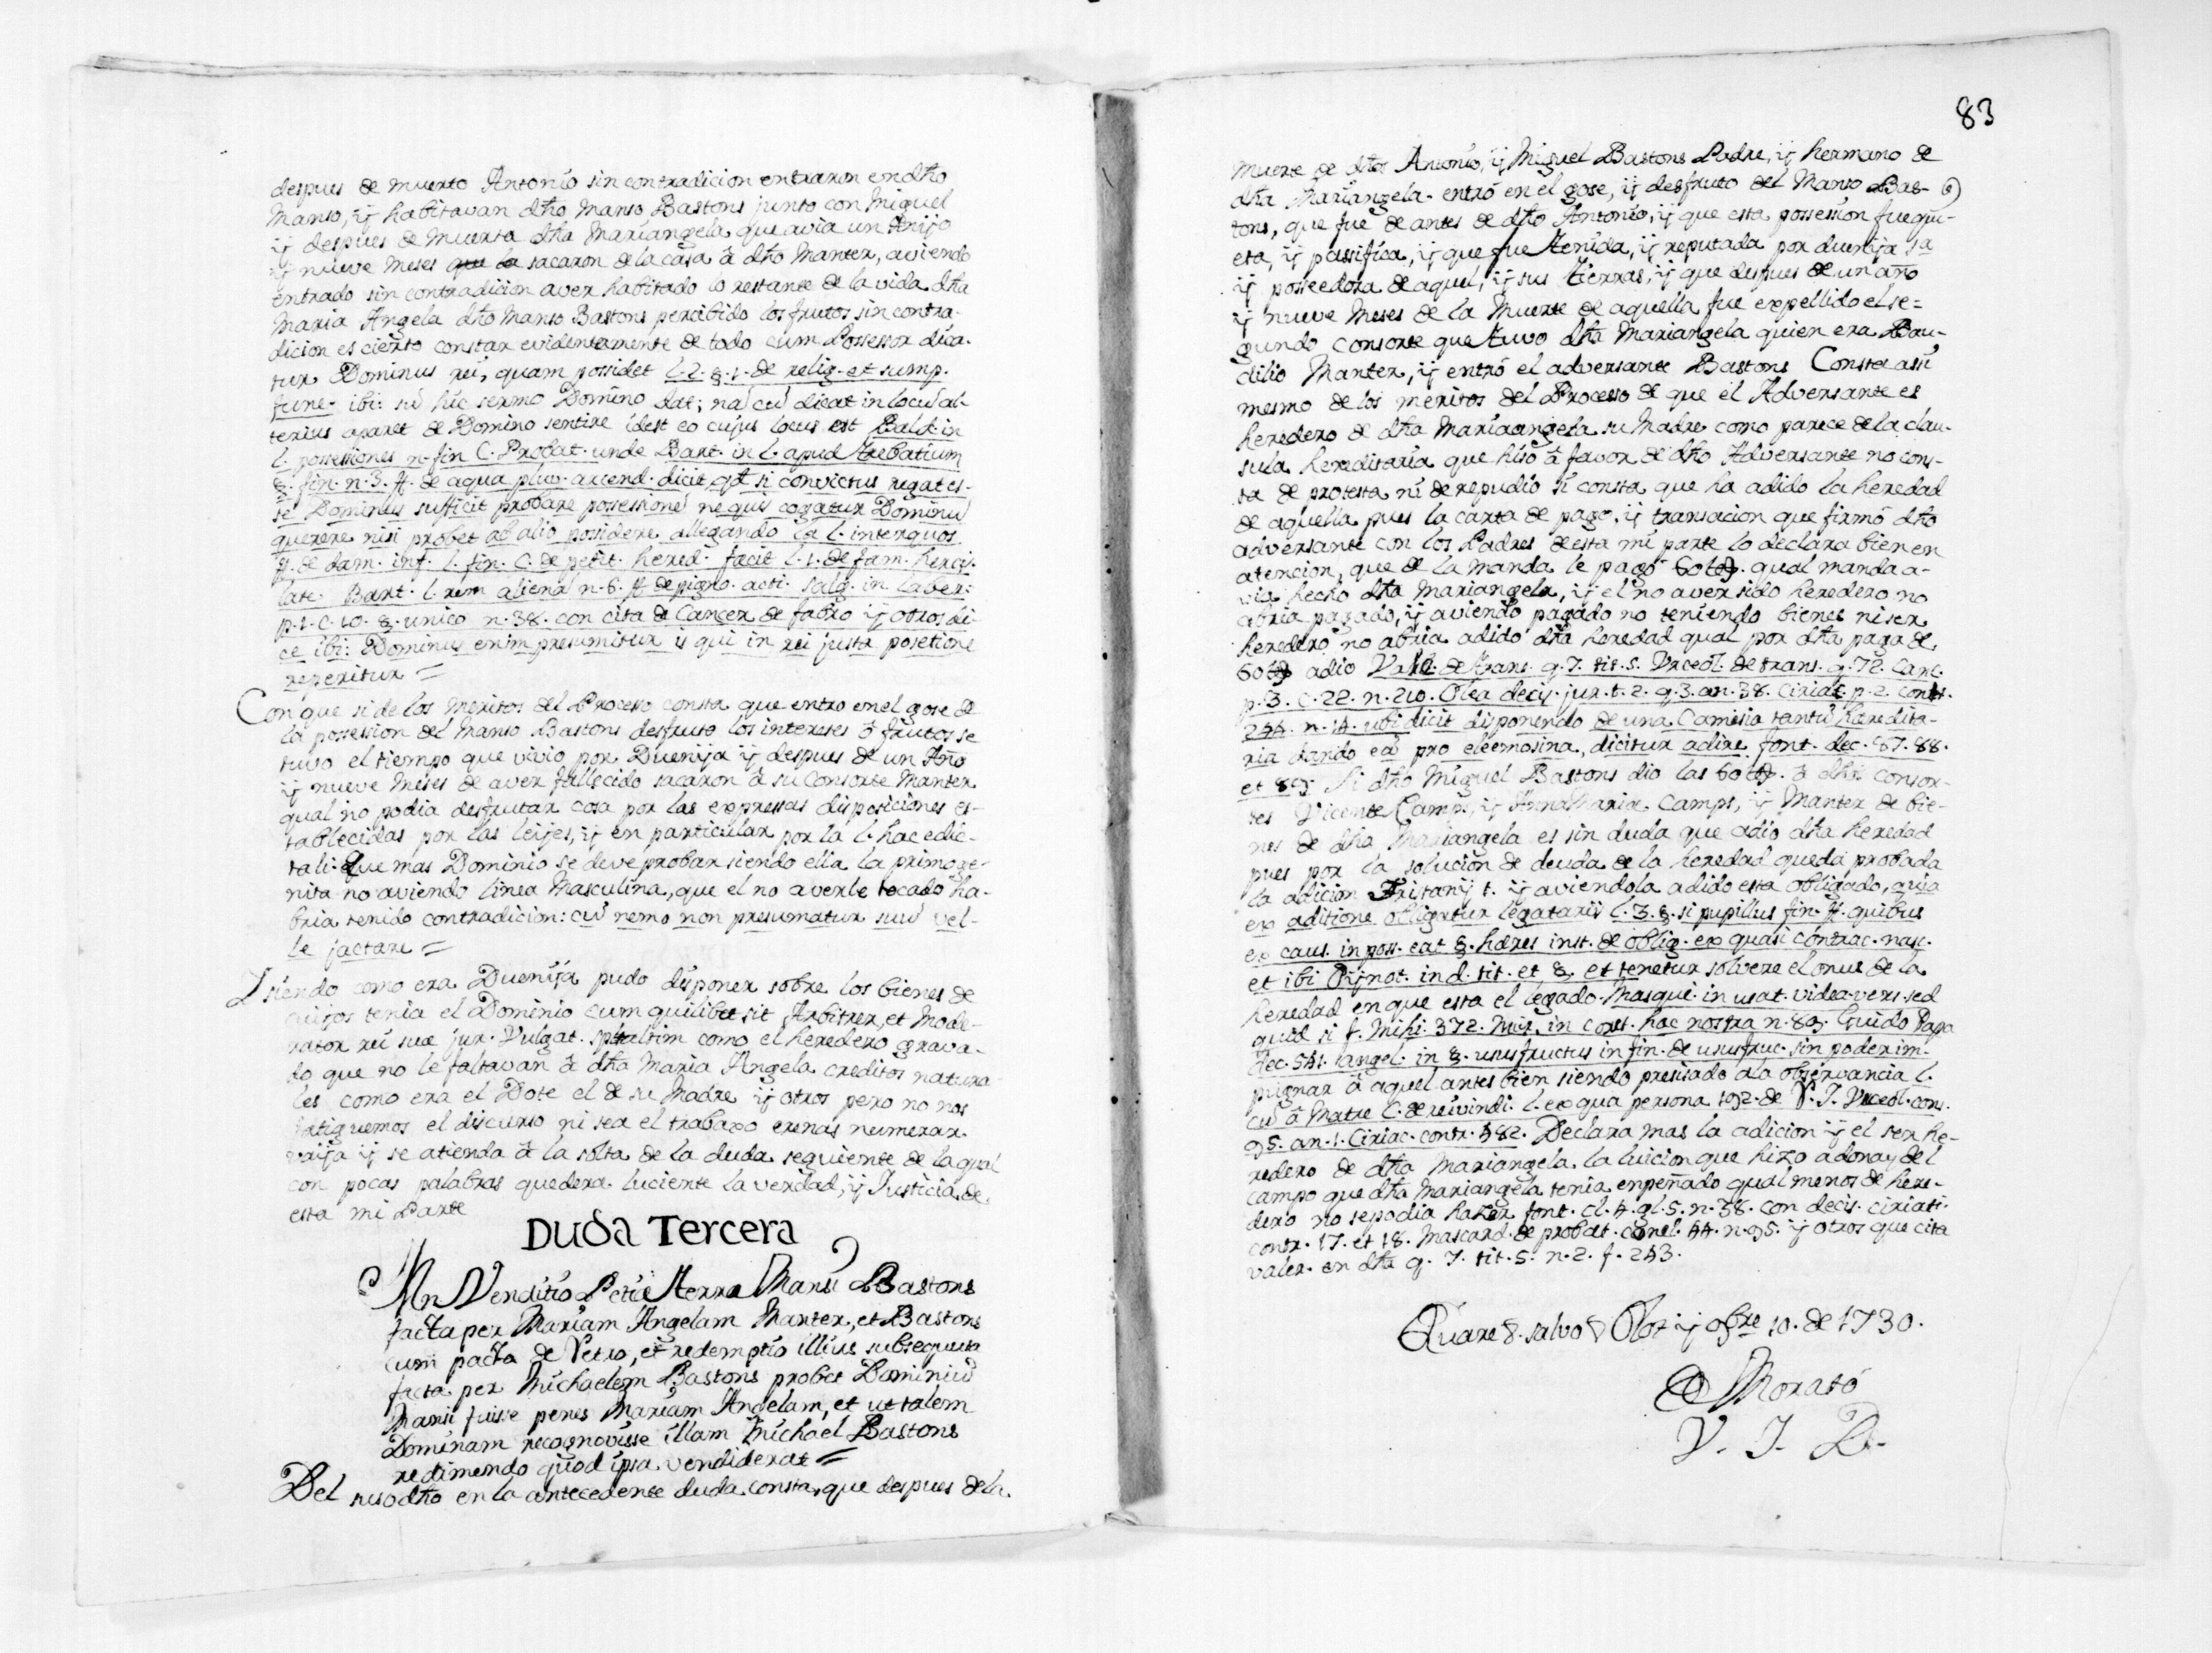 despues de muerto Antonio sin contradicion entraron en dho
Manso, ij habitavan dho Manso Bastons junto con Miguel
ij despues de Muerta dha Mariangela que avia un Anijo
ij nueve meses que la sacaron de la casa â dho Manter, aviendo
entrado sin contradicion aver habitado lo restante de la vida dha
Maria Angela dho Manso Bastons percibido los frutos sin contra-
dicion es cierto constar evidentemente de todo cum Possessor dica-
tur Dominus rei, quam possidet l. 2. §. 1. de relig. et sump.
fune. ibi: sú hic sermo Domino dat; nā cū dicat in locū al-
terius aparet de Domino sentire idest eo cujus locus est Bald. in
l. possessiones n. fin C. Probat. unde Bart. in l. apud Trebatium
§. fin. n. 3. ff. de aqua pluv. arcend. dicit qd si convictus negat es-
se Dominus sufficit probare possessionē ne quis cogatur Dominū
querere nisi probet ab alio possidere allegando la l. inter quos
ff. de dam. inf. l. fin. C. de petit. hered. facit l. 1. de fam. hercis.
late. Bart. l. rem alienā n. 6. ff. de pigno. acti. Salg. in Laber:
p. 1. c. 10. §. unico n. 38. con cita de Cancer de fabro ij otros di-
ce ibi: Dominus enim presumitur is qui in rei justa posetione
reperitur =
Con que si de los meritos del Processo consta que entro en el gose de
la possession del Manso Bastons desfruto los intereses ô frutos se
tuvo el tiempo que vivio por Duenija ij despues de un Año
ij nueve meses de aver fallecido sacaron â su Consorte Manter
qual no podia desfrutar cosa por las expressas disposiciones es-
tablecidas por las leijes, ij en particular por la l. hac edic-
tali. Que mas Dominio se deve probar siendo ella la primoge-
nita no aviendo linea Masculina, que el no averle tocado ha-
bria tenido contradicion: cū nemo non presumatur suū vel-
le jactare =
I siendo como era Duenija pudo disponer sobre los bienes de
cuijos tenia el Dominio cum quilibet sit Arbitrer, et Mode-
rator rei suæ jur. Vulgat. sptaltim como el heredero grava-
do que no le faltavan â dha Maria Angela creditos natura-
les como era el Dote el de su Madre ij otros pero no nos
fatiguemos el discurso ni sea el trabaxo en nas numerar.
ij se atienda â la solta de la duda seguiente de la qual
con pocas palabras quedera luciente la verdad, ij Justicia de
esta mi Parte
Duda Tercera
An Venditio Petiæ Terræ Mansi Bastons
facta per Mariam Angelam Manter, et Bastons
cum pacto de Retro, et redemptio illius subsequuta
facta per Michaelem Bastons probet Dominiū
Mansi fuisse penes Mariam Angelam, et ut talem
Dominam recognovisse illam Michael Bastons
redimendo quod ipsa vendiderat =
Del susodho en la antecedente duda consta, que despues de la
83
muerte de dhos Antonio, ij Miguel Bastons Padre, ij hermano de
dha Mariangela entró en el gose, ij desfruto del Manso Bas-
tons, que fue de antes de dho Antonio, ij que esta possesion fue qui-
eta, ij passifica, ij que fue tenida, ij reputada por duenija sa
ij posseedora de aquel, ij sus tierras, ij que despues de un año
ij nueve Meses de la Muerte de aquella fue expellido el se=
gundo consorte que tuvo dha Mariangela quien era Bau-
dilio Manter, ij entró el adversante Bastons Consta assi
mesmo de los meritos del Processo de que el Adversante es
heredero de dha Mariaangela su Madre como parece de la clau-
sula hereditaria que hisó â favor de dho Adversante no cons-
ta de protesta ni de repudio si consta que ha adido la heredad
de aquella pues la carta de pago, ij transacion que firmó dho
adversante con los Padres de esta mi parte lo declara bien en
atencion, que de la manda le pagó 60 qual manda a-
via hecho dha Mariangela, ij el no aver sido heredero no
abria pagado, ij aviendo pagado no teniendo bienes ni ser
heredero no abria adido dha heredad qual por dha paga de
60 adio Vale. de trans. q. 7. tit. 5. Urceol. de trans. q. 72. Canc.
p. 3. c. 22. n. 210. Olea decis. jur. t. 2. q. 3. an. 38. Ciriac. p. 2. contr.
244. n. 14. ubi dicit disponendo de una Camisia tantū haredita-
ria dando eā pro eleemosina, dicitur adire font. dec. 87. 88.
et 89. Si dho Miguel Bastons dio las 60 â dhos consor-
tes Vicente Camps, ij Anna Maria Camps, ij Manter de bie-
nes de dha Mariangela es sin duda que adio dha heredad
pues por la solucion de deuda de la heredad queda probada
la adicion Tristanij t. ij aviendola adido esta obligado, quia
ex aditione obligatur legatarii l. 3. §. si pupillus fin. ff. quibus
ex caus. in poss. eat §. hæres inst. de oblig. ex quasi contrac. nasc.
et ibi Pijnot. in d. tit. et §. et tenetur solvere el onus de la
heredad en que esta el legado. Masque. in usat. videa. vers. sed
quid si f. mihi. 372. Mier. in const. hac nostra n. 89. Guido Papa
dec. 541. langel. in §. ususfructus in fin. de ususfruc. sin poder im-
pugnar â aquel antes bien siendo presisado a la observancia l.
cū â Matre C. de reivindi. l. ex qua persona 192. de V. J. Urceol. cons.
95. an. 1. Ciriac. contr. 482. Declara mas la adicion ij el ser he-
redero de dha Mariangela la luicion que hizo adonaij del
campo que dha Mariangela tenia enpeñado qual menos de here-
dero no se podia hazer font. cl. 4. gl. 5. n. 38. con decis. ciriati.
contr. 17. et 18. Mascard. de probat. conel. 44. n. 95. ij otros que cita
valer. en dha q. 7. tit. 5. n. 2. f. 243.
Quare &. salvo & Olot ij 9bre 10. de 1730.
Morató
V. J. D.